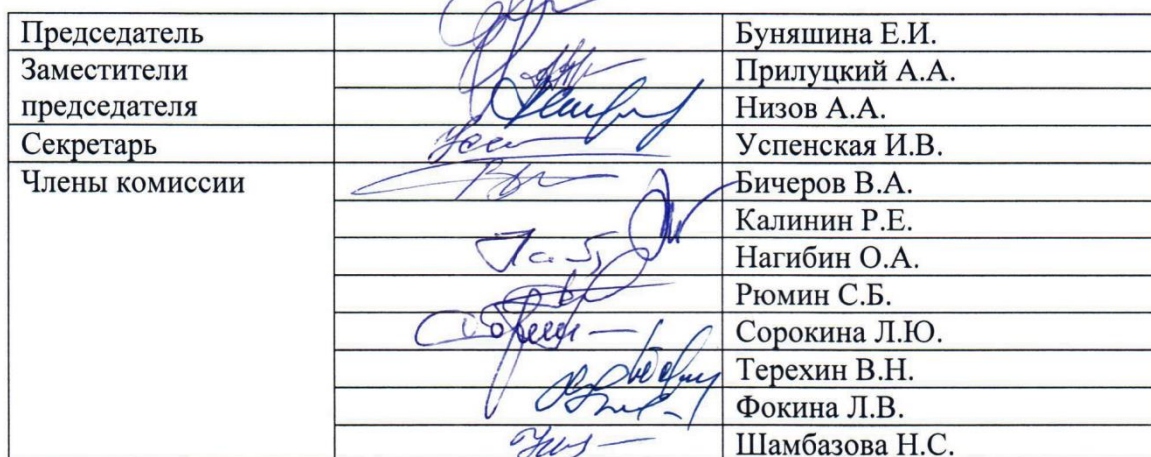 Председатель Буняшина Е.И.
Заместители Прилуцкий А.А.
председателя Низов А.А.
Секретарь Успенская И.В.
Члены комиссии Бичеров В.А.
Калинин Р.Е.
Нагибин О.А.
Рюмин С.Б.
Сорокина Л.Ю.
Терехин В.Н.
Фокина Л.В.
Шамбазова Н.С.